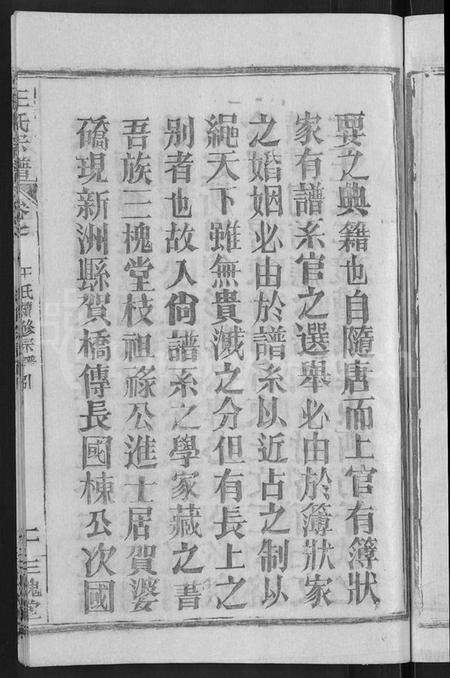 要之典籍也自隨唐而上官有簿狀
家有譜系官之選舉必由於簿狀家
之婚姻必由於譜系以近占之制以
繩天下雖無貴滅之分但有長上之
别者也故人尙譜系之學家藏之書
吾族三槐堂枝祖祿公進士居賀婆
僑現新洲縣賀橋傳長國棟公次國
王氏宗譜
卷七
王氏續修宗譜引
三槐堂